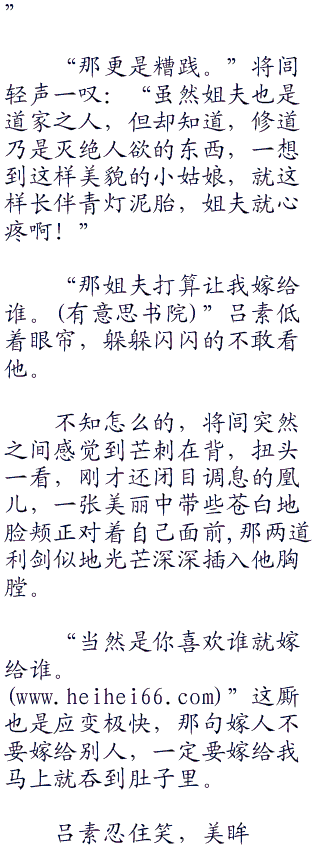 ”
“那更是糟践。”将闾
轻声一叹：“虽然姐夫也是
道家之人，但却知道，修道
乃是灭绝人欲的东西，一想
到这样美貌的小姑娘，就这
样长伴青灯泥胎，姐夫就心
疼啊！”
“那姐夫打算让我嫁给
谁。(有意思书院)”吕素低
着眼帘，躲躲闪闪的不敢看
他。
不知怎么的，将闾突然
之间感觉到芒刺在背，扭头
一看，刚才还闭目调息的凰
儿，一张美丽中带些苍白地
脸颊正对着自己面前,那两道
利剑似地光芒深深插入他胸
膛。
“当然是你喜欢谁就嫁
给谁。
(www.heihei66.com)”这厮
也是应变极快，那句嫁人不
要嫁给别人，一定要嫁给我
马上就吞到肚子里。
吕素忍住笑，美眸